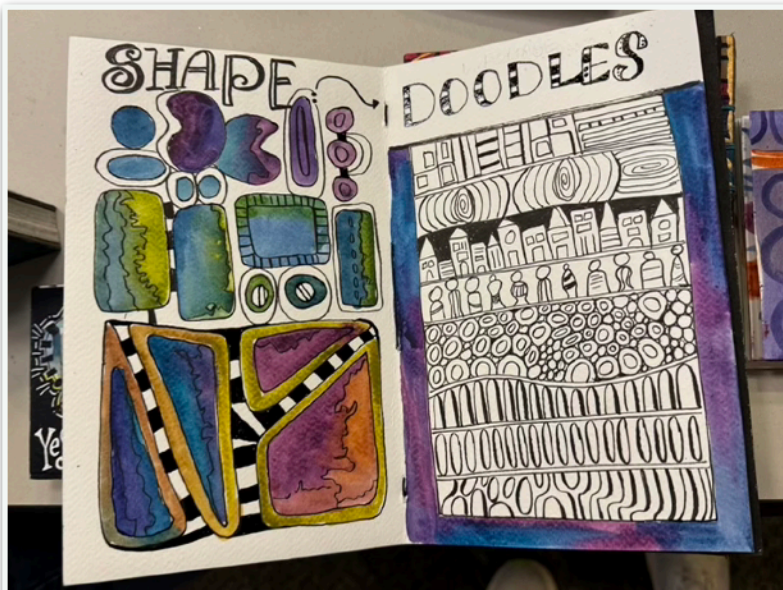 SHAPE
DOODLES